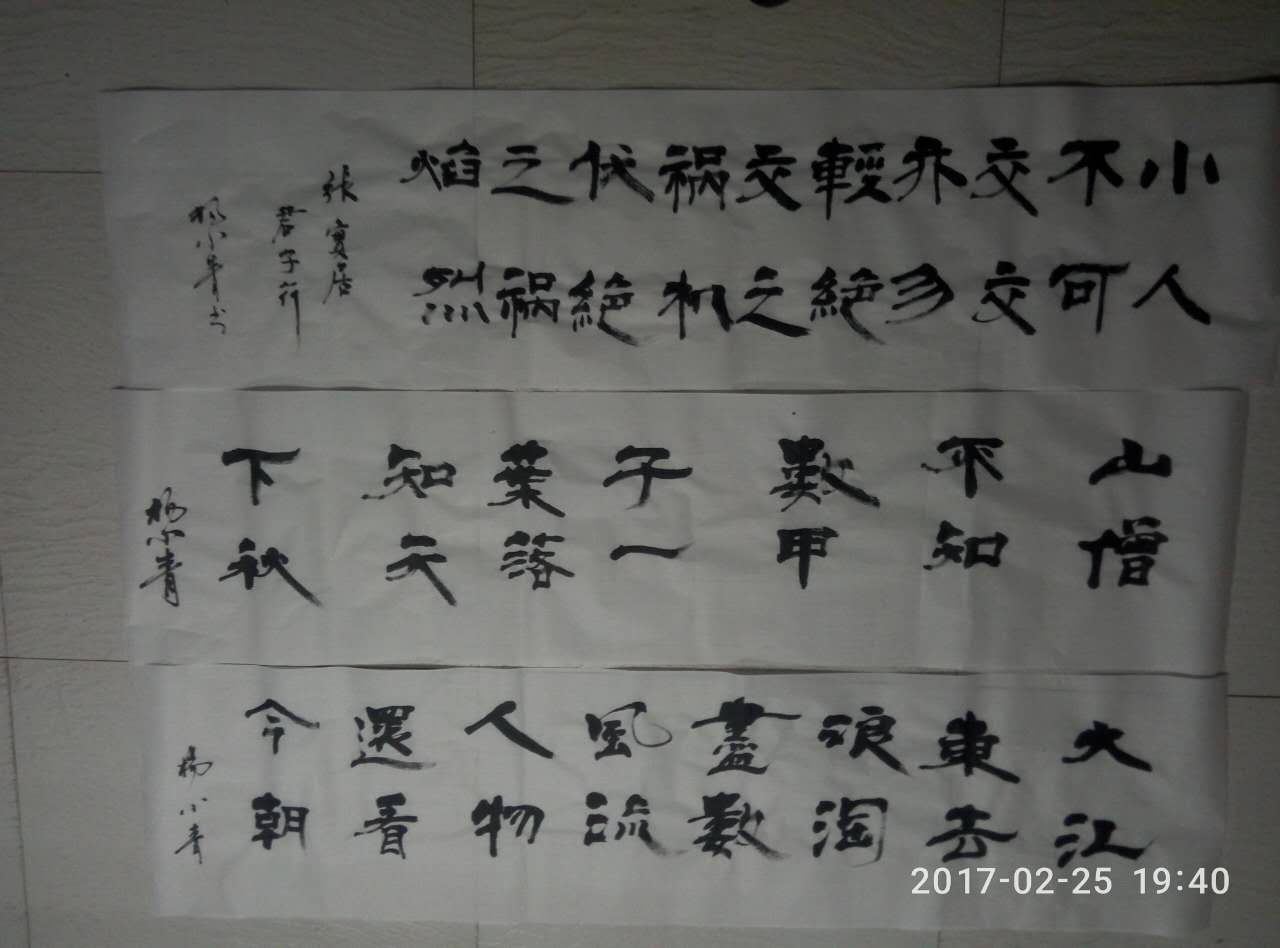 小人
不可
交交
亦勿
輕絶
交之
祸机
伏絶
之祸
焰烈
張實居
君子行
楊小青书
山僧
不知
數甲
子一
葉落
知天
下秋
楊小青
大江
東去
浪淘
盡數
風流
人物
還看
今朝
楊小青
2017-02-25 19:40